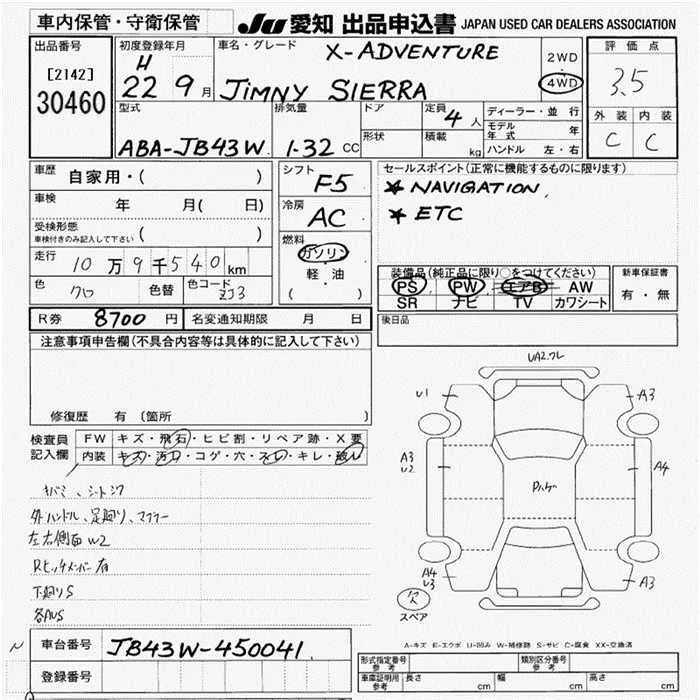 車内保管・守衛保管
JU 愛知 出品申込書 JAPAN USED CAR DEALERS ASSOCIATION
出品番号
[2142]
30460
初度登録年月
H
22 9 月
車名・グレード
X-ADVENTURE
JIMNY SIERRA
2WD
・
4WD
評価点
3.5
外装 内装
C C
型式
ABA-JB43W
排気量
1.32 CC
ドア
形状
定員
4 人
積載
kg
ディーラー・並行
モデル年式 年
ハンドル 左・右
車歴
自家用・( )
車検
年 月( 日)
受検形態
車検付きのみ記入して下さい ( )
走行
10万9千540km
色
クロ
色替
色コード
ZJ3
シフト
F5
冷房
AC
燃料
ガソリン
軽・油
( )
セールスポイント(正常に機能するものに限ります)
★ NAVIGATION
★ ETC
装備品(純正品に限り○をつけてください)
PS PW エアB AW
SR ナビ TV カワシート
新車保証書
有・無
R券 8700 円 名変通知期限 月 日
後日品
注意事項申告欄(不具合内容等は具体的に記入して下さい)
修復歴 有(箇所 )
検査員
記入欄
FW キズ・飛石・ヒビ割・リペア跡・X要
内装 キズ・汚れ・コゲ・穴・スレ・キレ・破レ
キバミ、シートシワ
外ハンドル、足廻り、マフラー
左右側面W2
Rヒッチメンバー有
下廻りS
各AUS
UA2.ワレ
U1
A3
A3
U2
Dハゲ
A4
A4
U3
A3
欠
スペア
A-キズ E-エクボ U-凹み W-補修跡 S-サビ C-腐食 XX-交換済
N
車台番号 JB43W-450041
登録番号
形式指定番号
参考
類別区分番号
参考
車庫証明用
参考
長さ cm 幅 cm 高さ cm